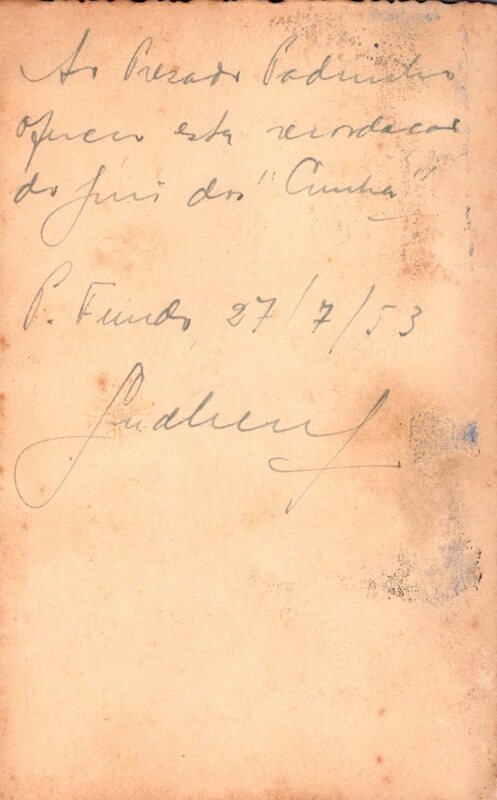 Ao Prezado Padrinho
ofereço esta recordação
do dos "Cunha"
P. Fundo, 27/7/53